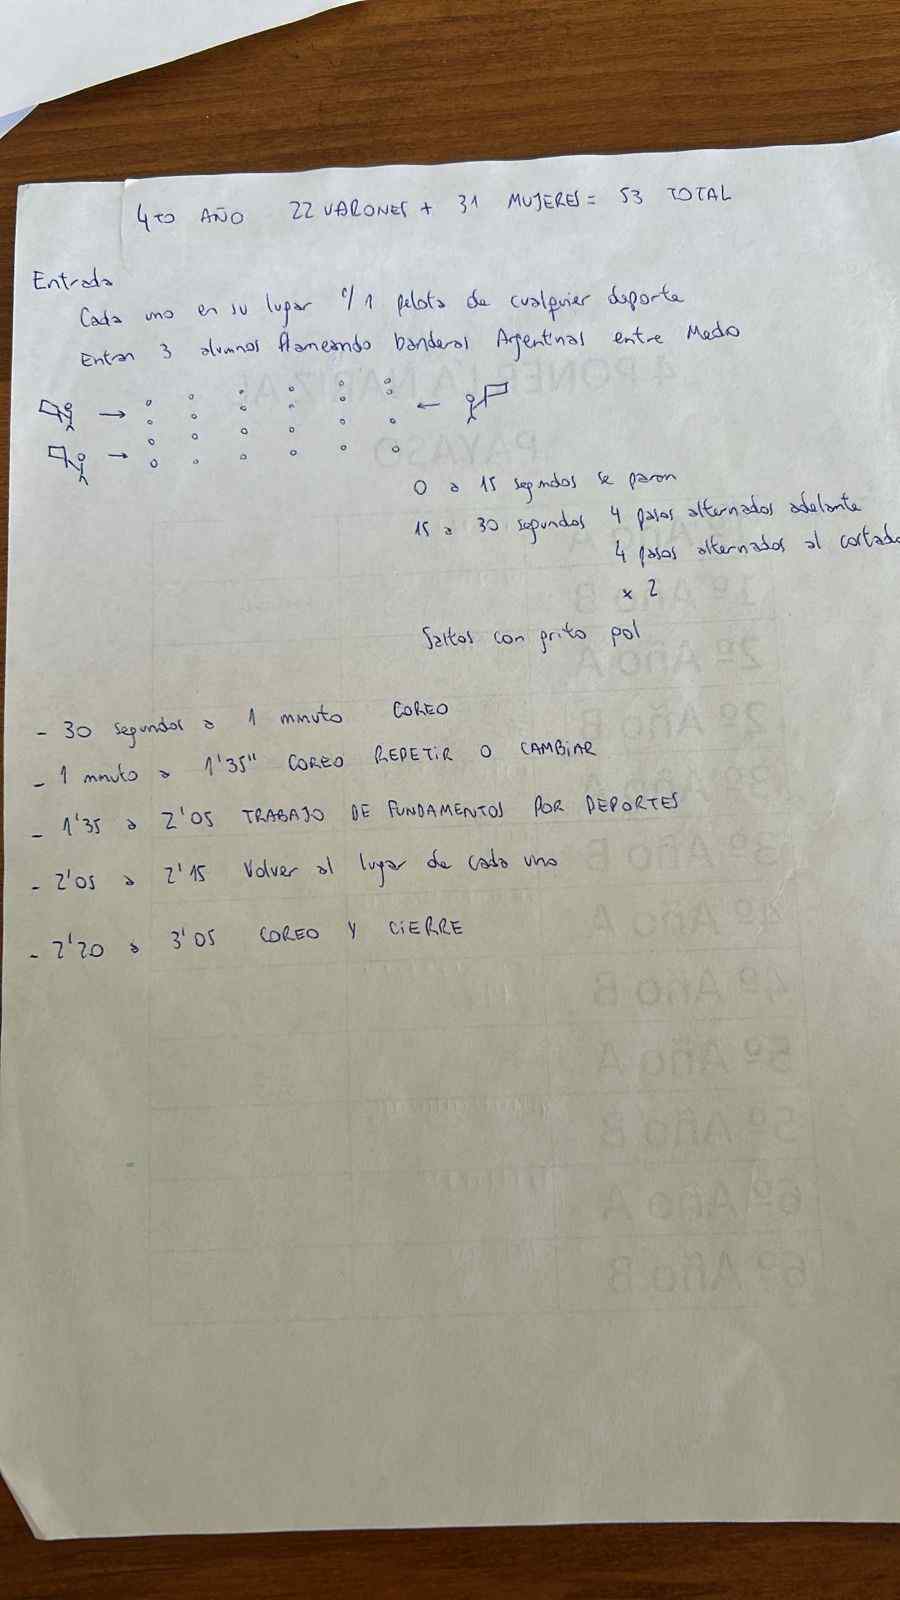 4TO AÑO 22 VARONES + 31 MUJERES = 53 TOTAL
Entrada
Cada uno en su lugar c/ 1 pelota de cualquier deporte
Entran 3 alumnos flameando banderas Argentinas entre Medio
0 a 15 segundos se paran
15 a 30 segundos 4 pasos alternados adelante
4 pasos alternados al costado
x 2
Saltos con grito pol
- 30 segundos a 1 minuto COREO
- 1 minuto a 1'35" COREO REPETIR O CAMBIAR
- 1'35 a 2'05 TRABAJO DE FUNDAMENTOS POR DEPORTES
- 2'05 a 2'15 Volver al lugar de cada uno
- 2'20 a 3'05 COREO Y CIERRE
A PONER LA NARIZ AL
PAYASO
1º Año B
2º Año A
3º Año B
4º Año A
4º Año B
5º Año A
5º Año B
6º Año A
6º Año B